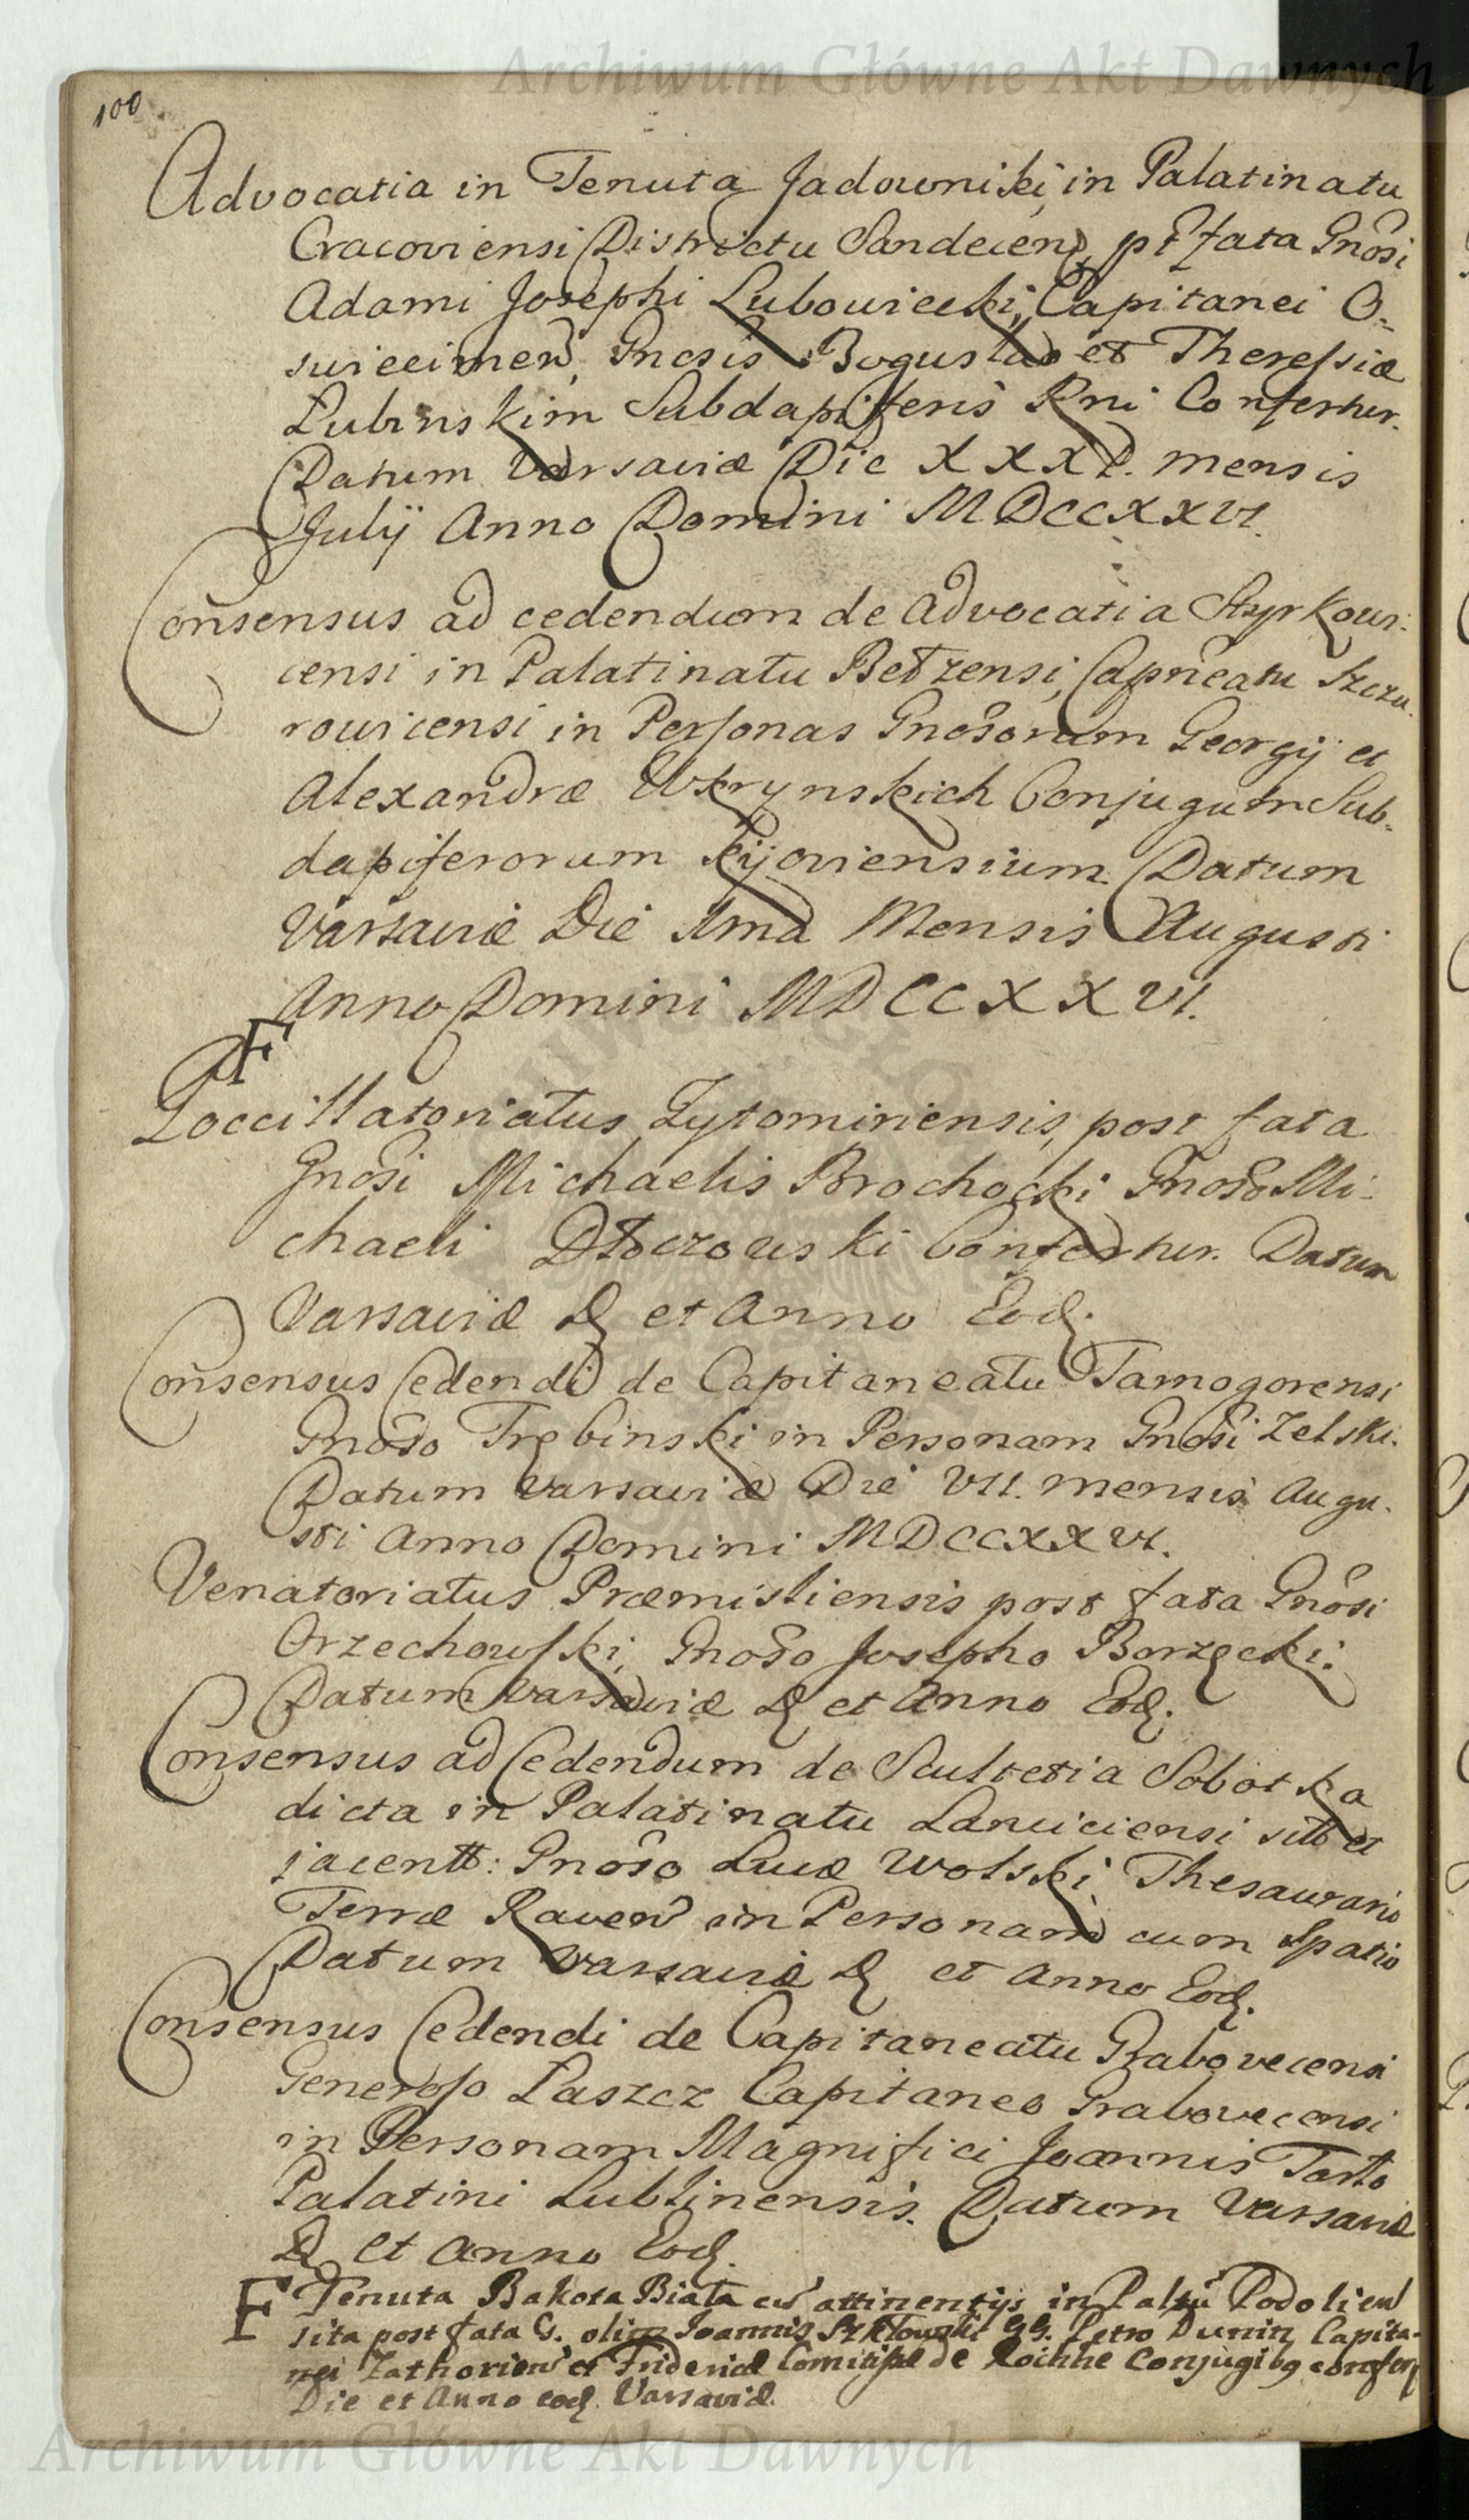 Archiwum Główne Akt Dawnych
100
Advocatia in Tenuta Jadowniki, in Palatinatu
Cracoviensi Districtu Sandecen, pt fata Gnosi
Adami Josephi Lubowiecki, Capitanei O-
swiecimen, Gnosis Bogusłao et Theresiæ
Lubinskim Subdapiferis Rni Confertur.
Datum Varsaviæ Die XXXI. mensis
Julij Anno Domini MDCCXXVI.
Consensus ad cedendum de Advocatia Styrkowi-
censi in Palatinatu Bełzensi, Capneatu Szczu-
rowicensi in Personas Gnosorum Georgij et
Alexandræ Ukrynskich Conjugum Sub-
dapiferorum Kijoviensium. Datum
Varsaviæ Die Ima Mensis Augusti
Anno Domini MDCCXXVI.
F
Poccillatoriatus Zytomiriensis, post fata
Gnosi Michaelis Brochocki Gnoso Mi-
chaeli Dłoczowski Confertur. Datum
Varsaviæ D et Anno Eod.
Consensus Cedendi de Capitaneatu Tarnogorensi
Gnoso Trębinski in Personam Gnosi Zelski.
Datum Varsaviæ Die VII. mensis Augu-
sti Anno Domini MDCCXXVI.
Venatoriatus Præmisliensis post fata Gnosi
Orzechowski, Gnoso Josepho Borzęcki.
Datum Varsaviæ D et Anno Eod.
Consensus ad Cedendum de Scultetia Sobotka
dicta in Palatinatu Lanciciensi sitt et
jacentt: Gnoso Lucæ Wolski, Thesaurario
Terræ Raven in Personam cum Spatio
Datum Varsaviæ D et Anno Eod.
Consensus Cedendi de Capitaneatu Grabovecensi
Generoso Łaszcz Capitaneo Grabovecensi
in Personam Magnifici Joannis Tarło
Palatini Lublinensis. Datum Varsaviæ
D et Anno Eod.
F Tenuta Bakota Biała cu attinentijs in Paltu Podolien
sita post fata G. olim Joannis GG. Petro Dunin Capita-
nei Zathorien et Fridericæ Comitissæ de Conjugibq confert
Die et Anno eod. Varsaviæ.
Archiwum Główne Akt Dawnych